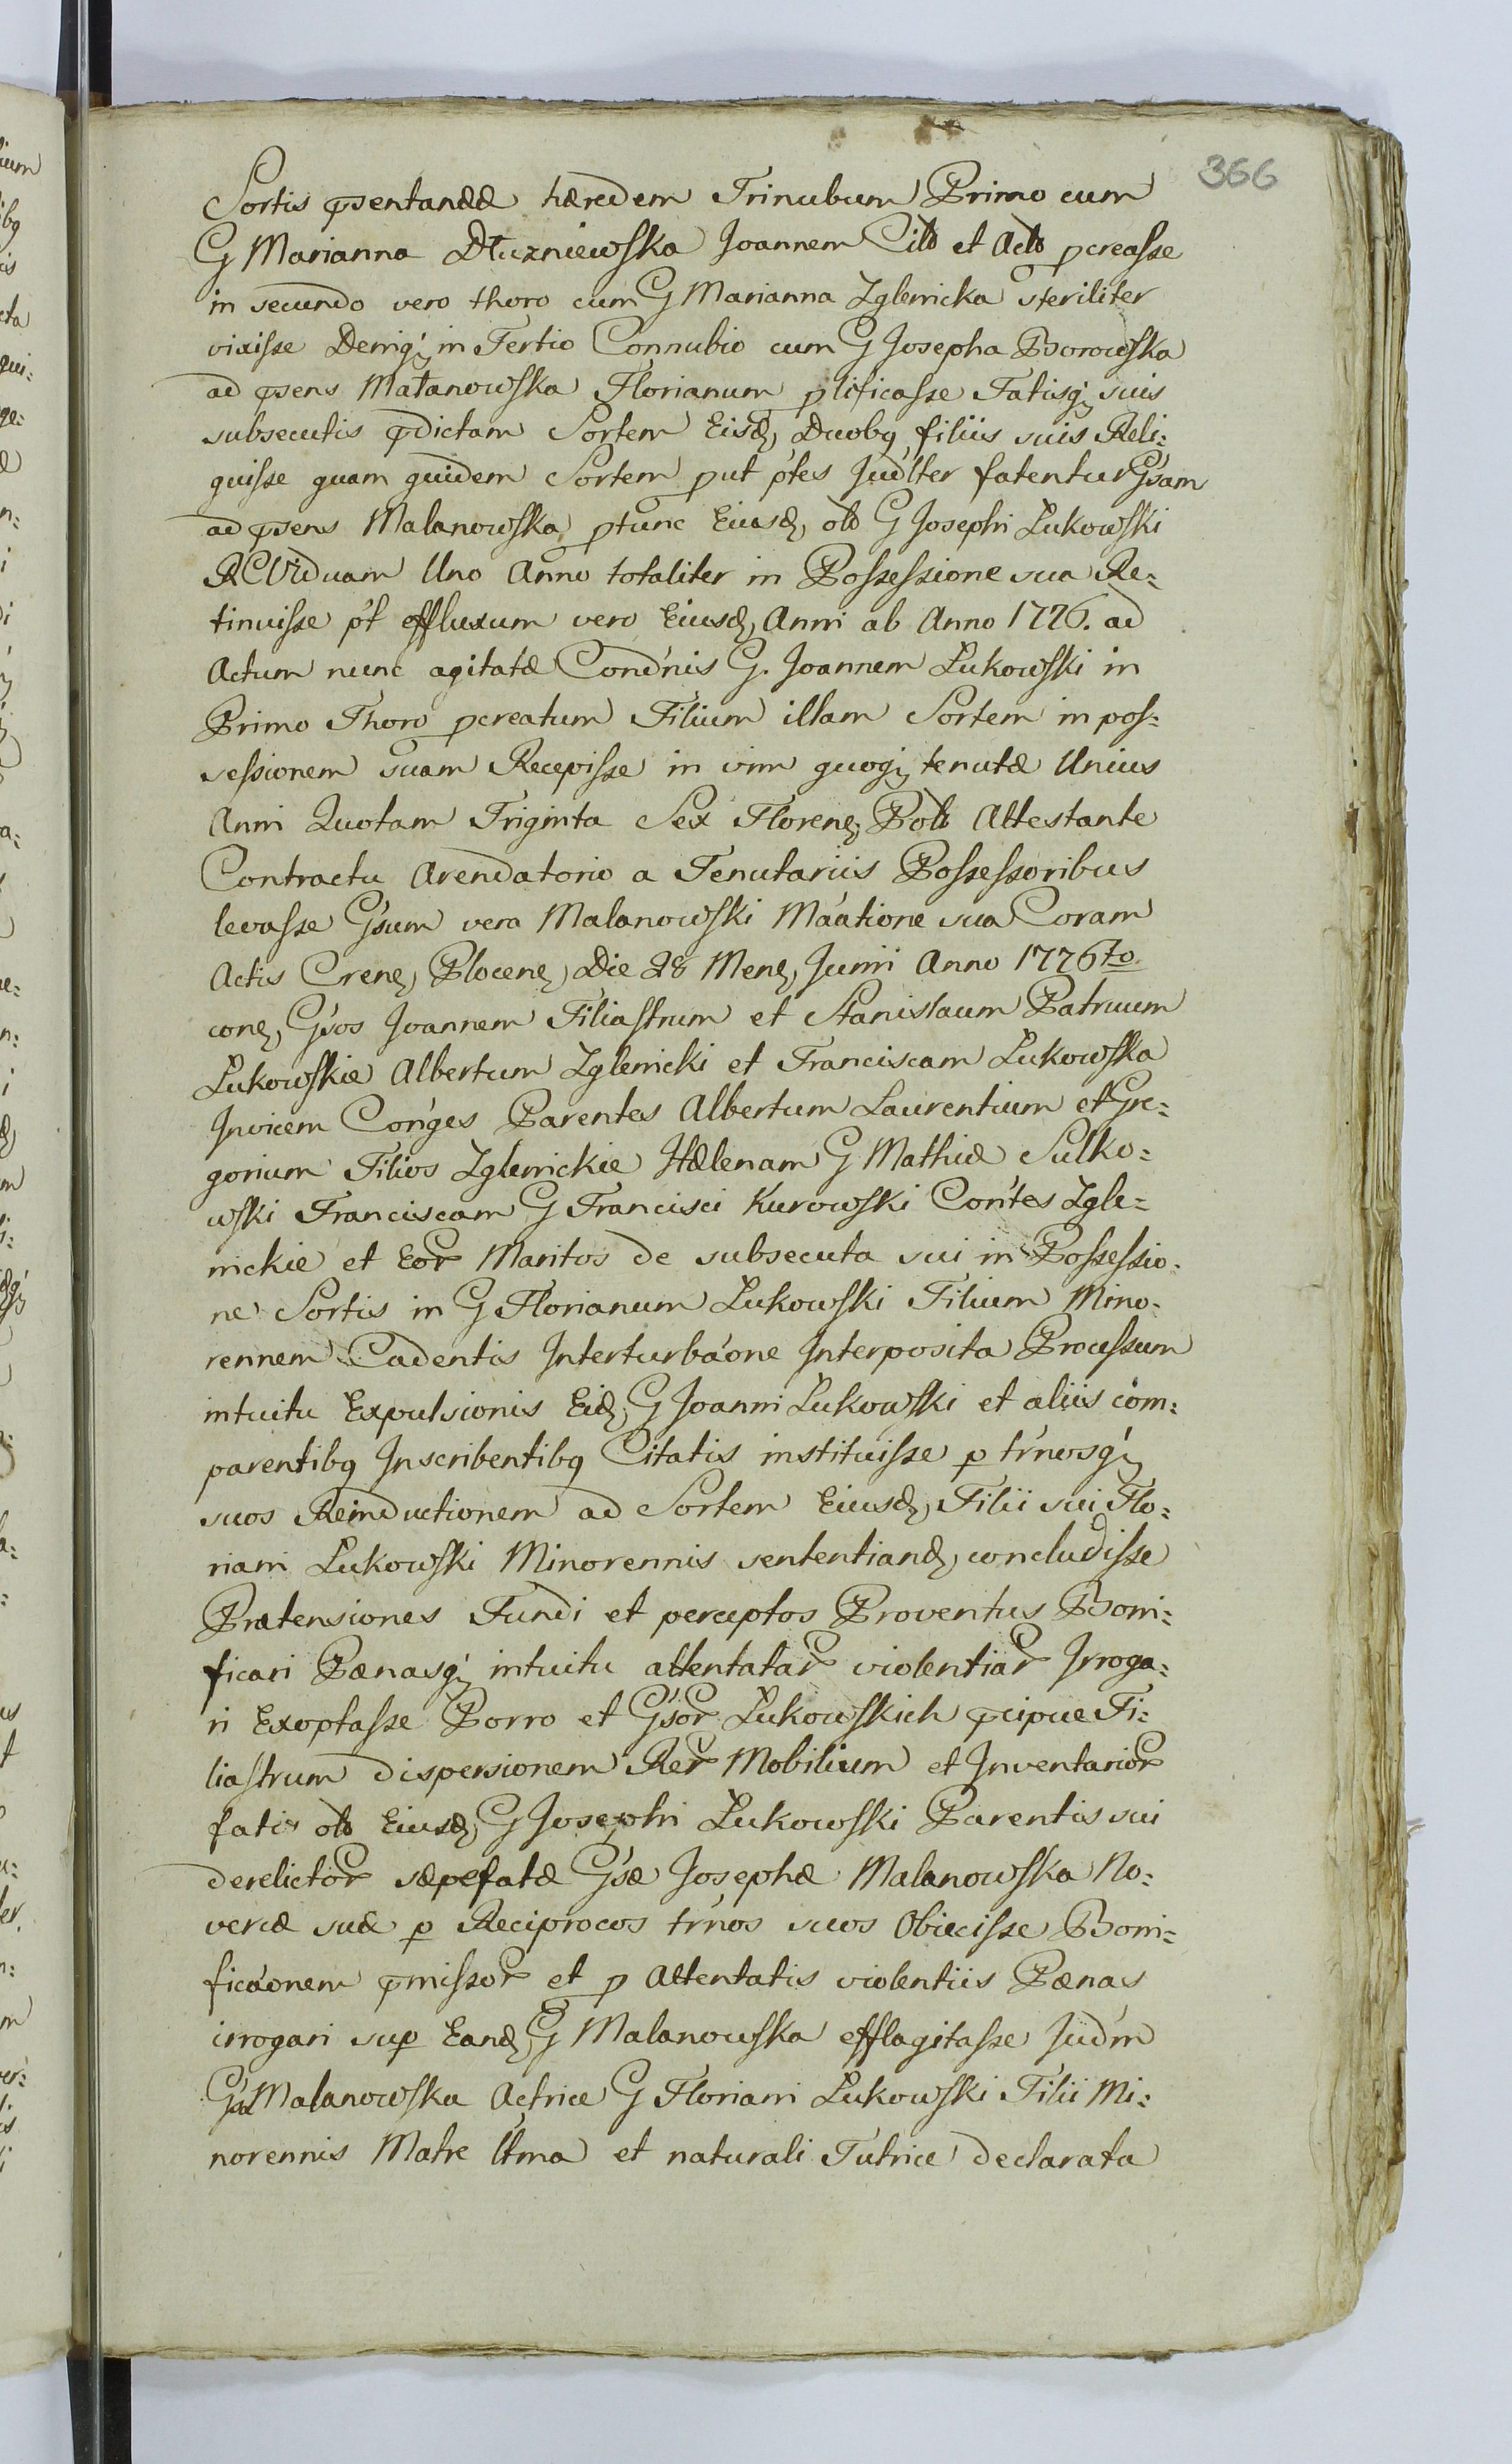 366
Sortis p̄sentaneæ hæredem Trinubum Primo cum
G Marianna Dłuzniewska Joannem Citt et Actt pcreasse
in secundo vero thoro cum G Marianna Zglenicka steriliter
vixisse Deniq; in Tertio Connubio cum G Josepha Borowska
ad p̄sens Małanowska Florianum plificasse Fatisq; suis
subsecutis p̄dictam Sortem Eisd, Duobq filiis suis Reli=
quisse quam quidem Sortem put ptes Judlter fatentur Gsam
ad p̄sens Malanowska ptunc Eiusd, olt G Josephi Lukowski
R Viduam Uno Anno totaliter in Possessione sua Re=
tinuisse p't effluxum vero Eiusd, Anni ab Anno 1776. ad
Actum nunc agitatæ Cond'nis G. Joannem Lukowski in
Primo Thoro pcreatum Filium illam Sortem in pos=
sessionem suam Recepisse in vim quoq; tenutæ Unius
Anni Quotam Triginta Sex Floren, Poll Attestante
Contractu Arendatorio a Tenutariis Possessoribus
levasse Gsum vero Malanowski Máatione sua Coram
Actis Cren, Plocen, Die 28 Men, Junii Anno 1776to
con, Gsos Joannem Filiastrum et Stanislaum Patruum
Lukowskie Albertum Zglenicki et Franciscam Lukowska
Invicem Con'ges Parentes Albertum Laurentium et Gre=
gorium Filios Zglenickie Hælenam G Mathiæ Sulko=
wski Franciscam G Francisci Kurowski Con'tes Zgle=
nickie et Eor Maritos de subsecuta sui in Possessio=
ne Sortis in G Florianum Lukowski Filium Mino=
rennem Cadentis Interturbáone Interposita Processum
intuitu Expulsionis Eid, G Joanni Lukowski et aliis com=
parentibq Inscribentibq Citatis instituisse p tr'nosq;
suos Reinductionem ad Sortem Eiusd, Filii sui Flo=
riani Lukowski Minorennis sententiand, concludisse
Prætensiones Fundi et perceptos Proventus Boni=
ficari Pænasq; intuitu attentatar violentiar Irroga=
ri Exoptasse Porro et Gsor Lukowskich p̄cipue Fi=
liastrum dispersionem Rer Mobilium et Inventarior
fatis olt Eiusd, G Josephi Lukowski Parentis sui
derelictor sæpefatæ Gsæ Josephæ Malanowska No=
vercæ suæ p Reciprocos tr'nos suos Obiecisse Boni=
ficáonem p̄missor et p Attentatis violentiis Pænas
irrogari sup Eand, G Malanowska efflagitasse Jud'm
Gsæ Malanowska Actrice G Floriani Lukowski Filii Mi=
norennis Matre lt'ma et naturali Tutrice declarata